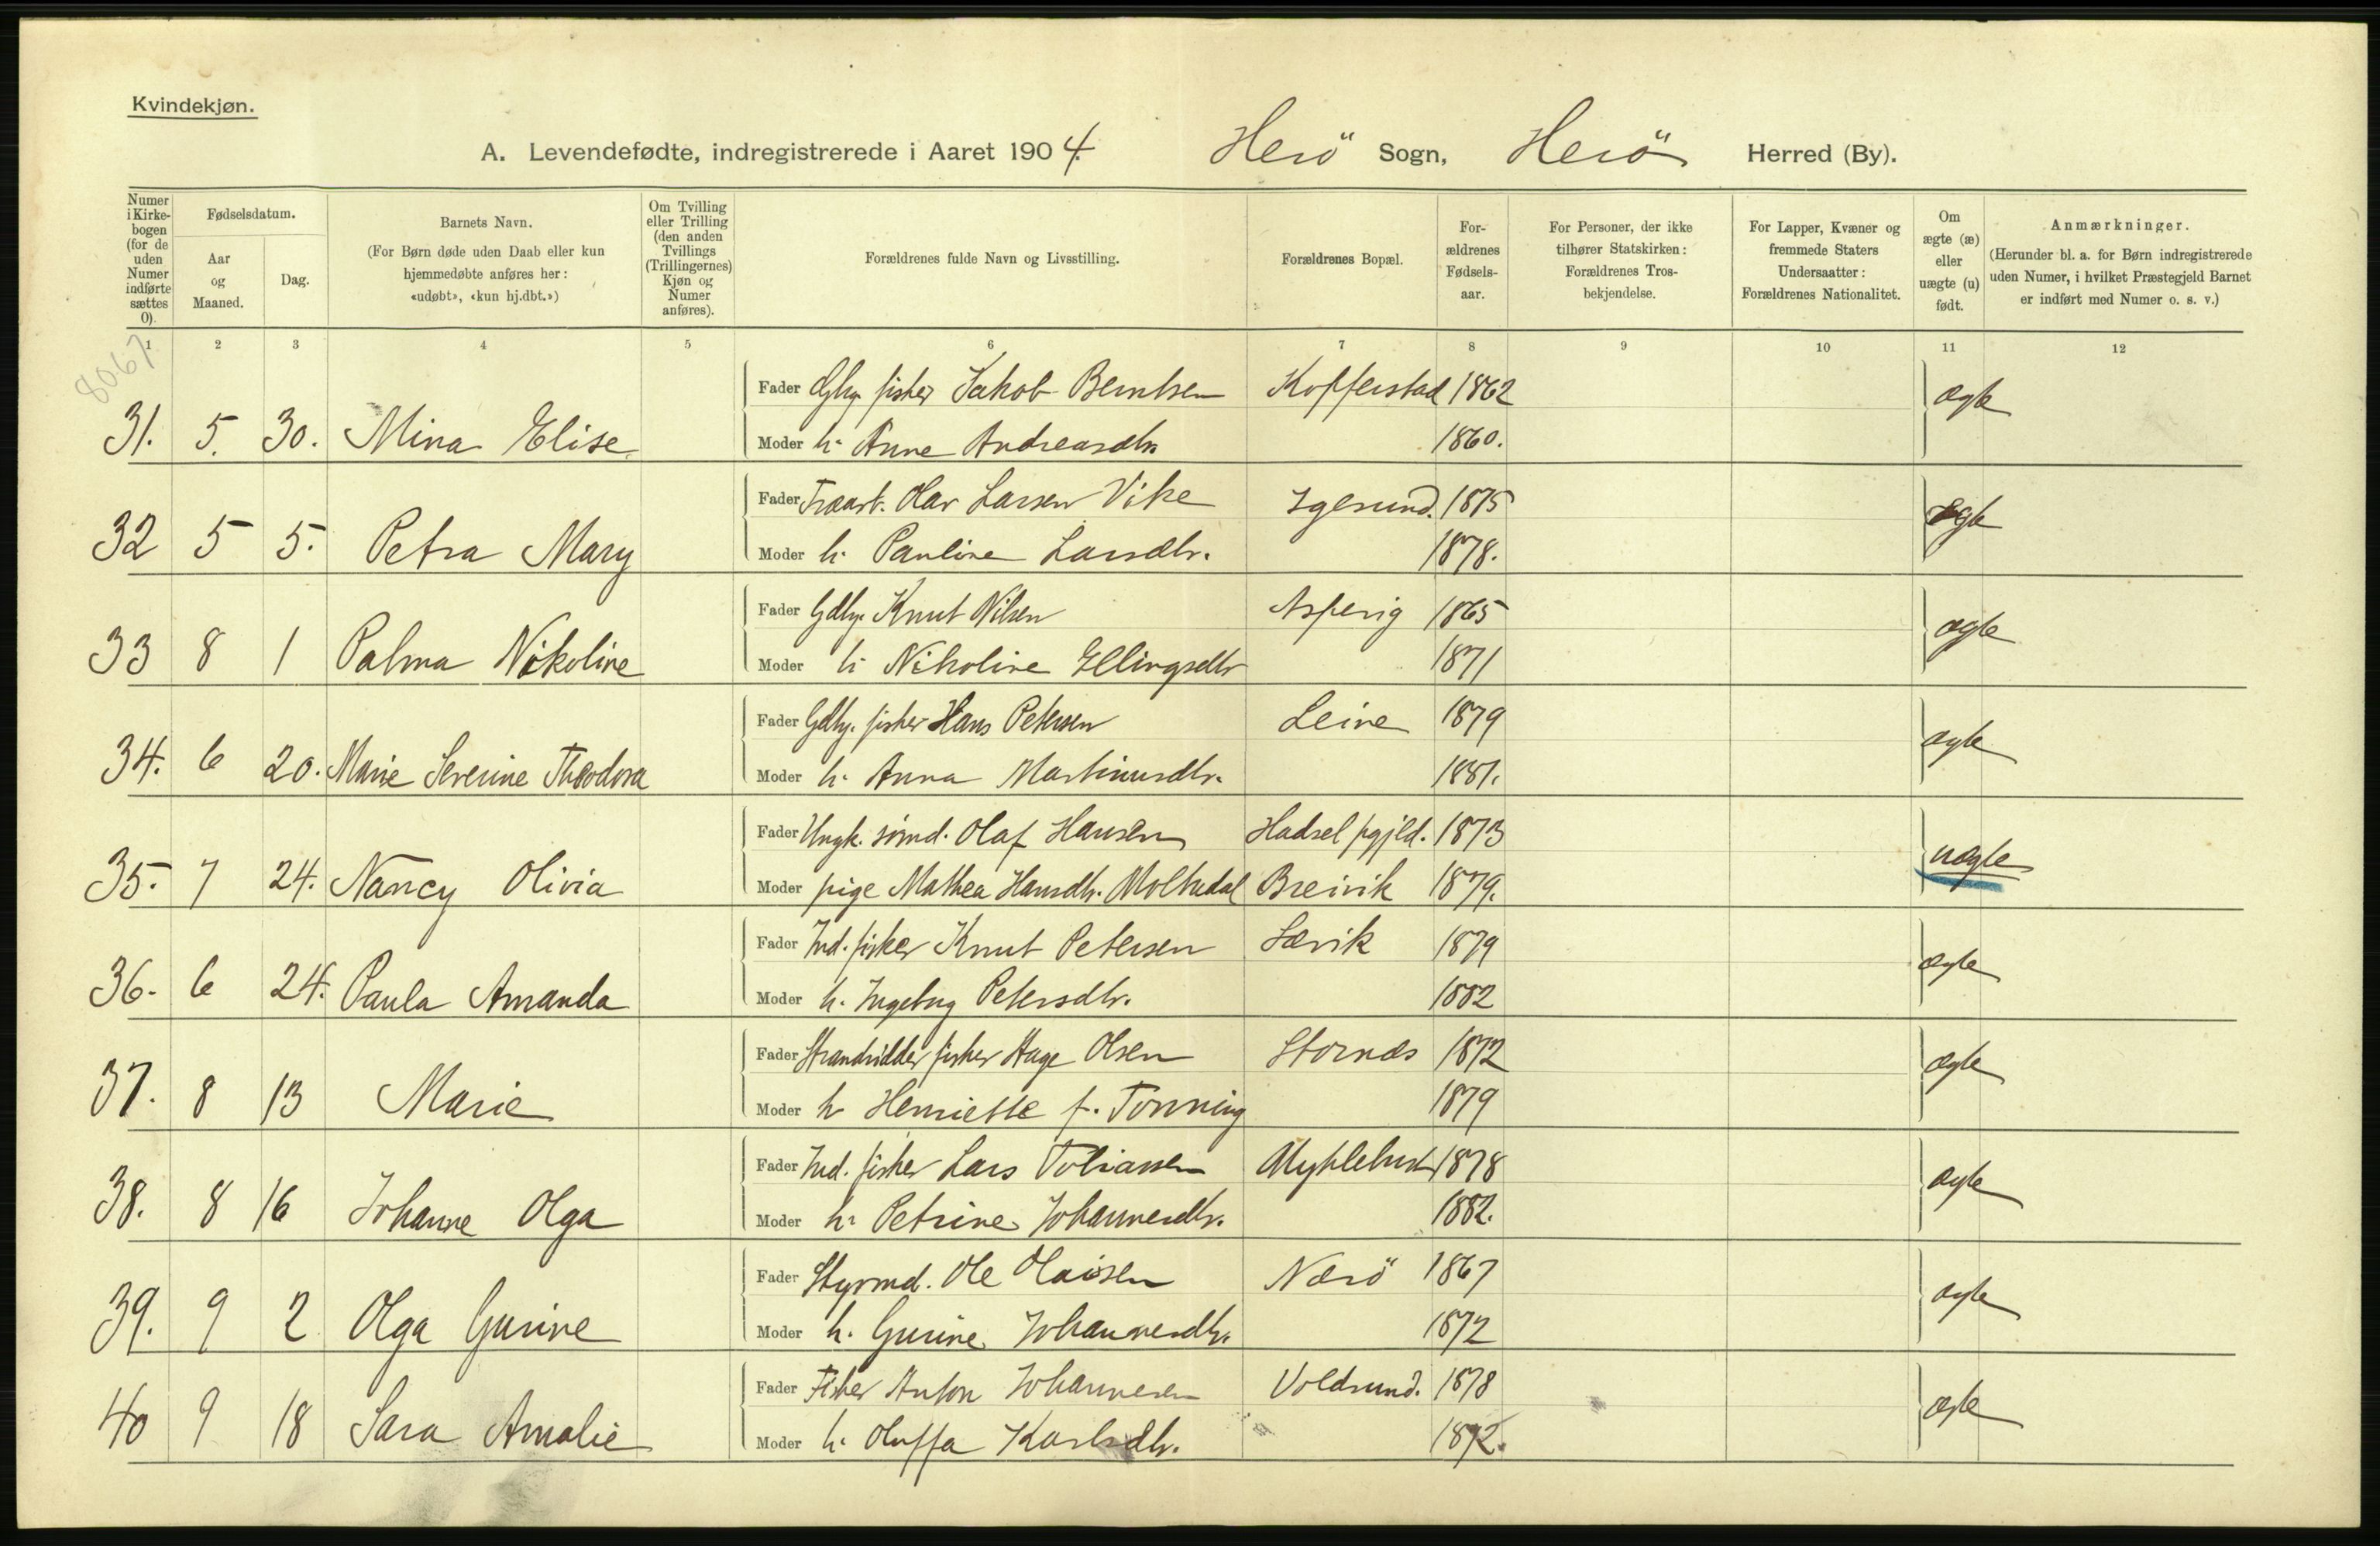 Kvindekjøn.
A. Levendefødte, indregistrerede i Aaret 1904. Herö Sogn, Herö Herred (By).
Numer i Kirke-bogen (for de uden Numer indførte sættes 0).
Fødselsdatum.
Aar og Maaned.
Dag.
Barnets Navn.
(For Børn døde uden Daab eller kun hjemmedøbte anføres her: «udøbt», «kun hj.dbt.»)
Om Tvilling eller Trilling (den anden Tvillings (Trillingernes) Kjøn og Numer anføres).
Forældrenes fulde Navn og Livsstilling.
Forældrenes Bopæl.
For-ældrenes Fødsels-aar.
For Personer, der ikke tilhører Statskirken: Forældrenes Tros-bekjendelse.
For Lapper, Kvæner og fremmede Staters Undersaatter: Forældrenes Nationalitet.
Om ægte (æ) eller uægte (u) født.
Anmærkninger.
(Herunder bl. a. for Børn indregistrerede uden Numer, i hvilket Præstegjeld Barnet er indført med Numer o. s. v.)
1 2 3 4 5 6 7 8 9 10 11 12
8067
Fader Gbr. fisker Jakob Berntsen Kopperstad 1862 ægte
31. 5. 30. Mina Elise Moder h. Anne Andreasdtr. 1860.
Fader Fraart. Olav Larsen Vike Igesund. 1875 ægte
32 5 5. Petra Mary Moder h. Pauline Larsdtr. 1878.
Fader Gdbr. Knut Nilsen Aspevig 1865 ægte
33 8 1 Palma Nikoline Moder h. Nikoline Ellingsdtr 1871
Fader Gdbr. fisker Hans Petersen Leine 1879 ægte
34. 6 20. Marie Severine Theodora Moder h. Anna Martinusdtr. 1881.
Fader Ungk. sømd. Olaf Hansen Hadsel pgjld. 1873 uægte
35. 7 24. Nancy Olivia Moder pige Mathea Hansdtr. Moltudal Breivik 1879.
Fader Ind. fisker Knut Petersen Sævik 1879 ægte
36. 6 24. Paula Amanda Moder h. Ingebrg Petersdtr. 1882
Fader Strandsidder fisker Hage Olsen Stornæs 1872 ægte
37. 8 13 Marie Moder h Henriette f. Tonning 1879
Fader Ind. fisker Lars Tobiassen Myklebust 1878 ægte
38. 8 16 Johanne Olga Moder h. Petrine Johannesdtr. 1882.
Fader Styrmd. Ole Olaisen Nærö 1867 ægte
39. 9 2 Olga Gurine Moder h. Gurine Johannesdtr. 1872
Fader Fisker Anton Johannesen Voldsund. 1878 ægte
40 9 18 Sara Amalie Moder h. Oluffa Karlsdtr. 1872.